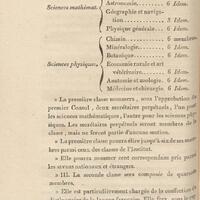 Sciences mathémat.
Astronomie. . . . . . 6 Idem.
Géographie et naviga-
tion . . . . . . . . . 3 Idem.
Physique générale. . . 6 Idem.
Sciences physiques.
Chimie. . . . . . . . 6 membres.
Minéralogie. . . . . . 6 Idem.
Botanique . . . . . . 6 Idem.
Économie rurale et art
vétérinaire. . . . . . 6 Idem.
Anatomie et zoologie. 6 Idem.
Médecine et chirurgie 6 Idem.
» La première classe nommera, sous l'approbation du
premier Consul, deux secrétaires perpétuels, l'un pour
les sciences mathématiques, l'autre pour les sciences physi-
ques. Les secrétaires perpétuels seront membres de la
classe, mais ne feront partie d'aucune section.
» La première classe pourra élire jusqu'à six de ses mem-
bres parmi ceux des classes de l'Institut.
» Elle pourra nommer cent correspondans pris parmi
les savans nationaux et étrangers.
» III. La seconde classe sera composée de quarante
membres.
» Elle est particulièrement chargée de la confection du
dictionnaire de la langue française. Elle fera, sous le rap-